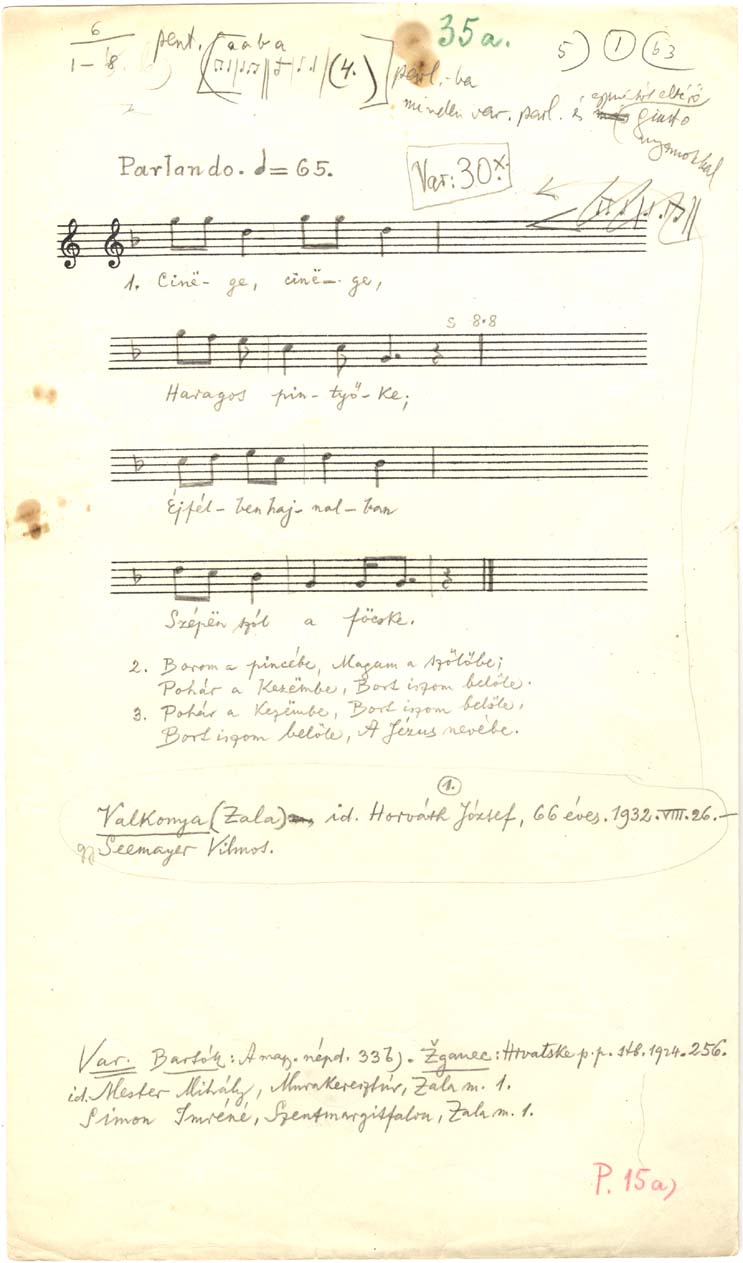 6
1 – 8
pent. aaba
(4.)
parl.-ba
35a.
5) 1 (b3
minden var. parl. és ezüktől eltérő giusto
Parlando. = 65.
Var: 30x.
1. Cinë- ge, cinë- ge,
S 8.8
Haragos pin- tyő- ke;
Éjfél- ben haj- nal- ban
Szépën szól a föcske.
2. Borom a pincébe, Magam a szőlőbe;
Pohár a Kezëmbe, Bort iszom belőle.
3. Pohár a Kezëmbe, Bort iszom belőle,
Bort iszom belőle, A Jézus nevébe.
1.
Valkonya (Zala) id. Horváth József, 66 éves. 1932. VIII. 26. –
gy Seemayer Vilmos.
Var. Bartók: A mag. népd. 33b). Žganec: Hrvatske p.p. stb. 1924. 256.
id. Mester Mihály, Murakeresztúr, Zala m. 1.
Simon Imréné, Szentmargitfalva, Zala m. 1.
P. 15a)